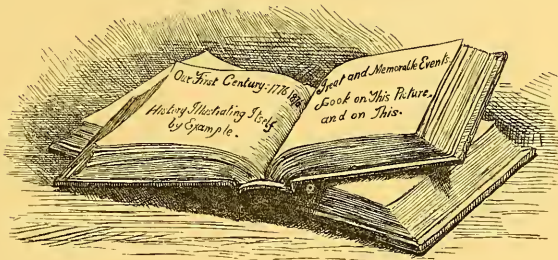 Our First Century: 1776 1876.
History Illustrating Itself
by Example.
Great and Memorable Events.
Look on This Picture,
and on This.